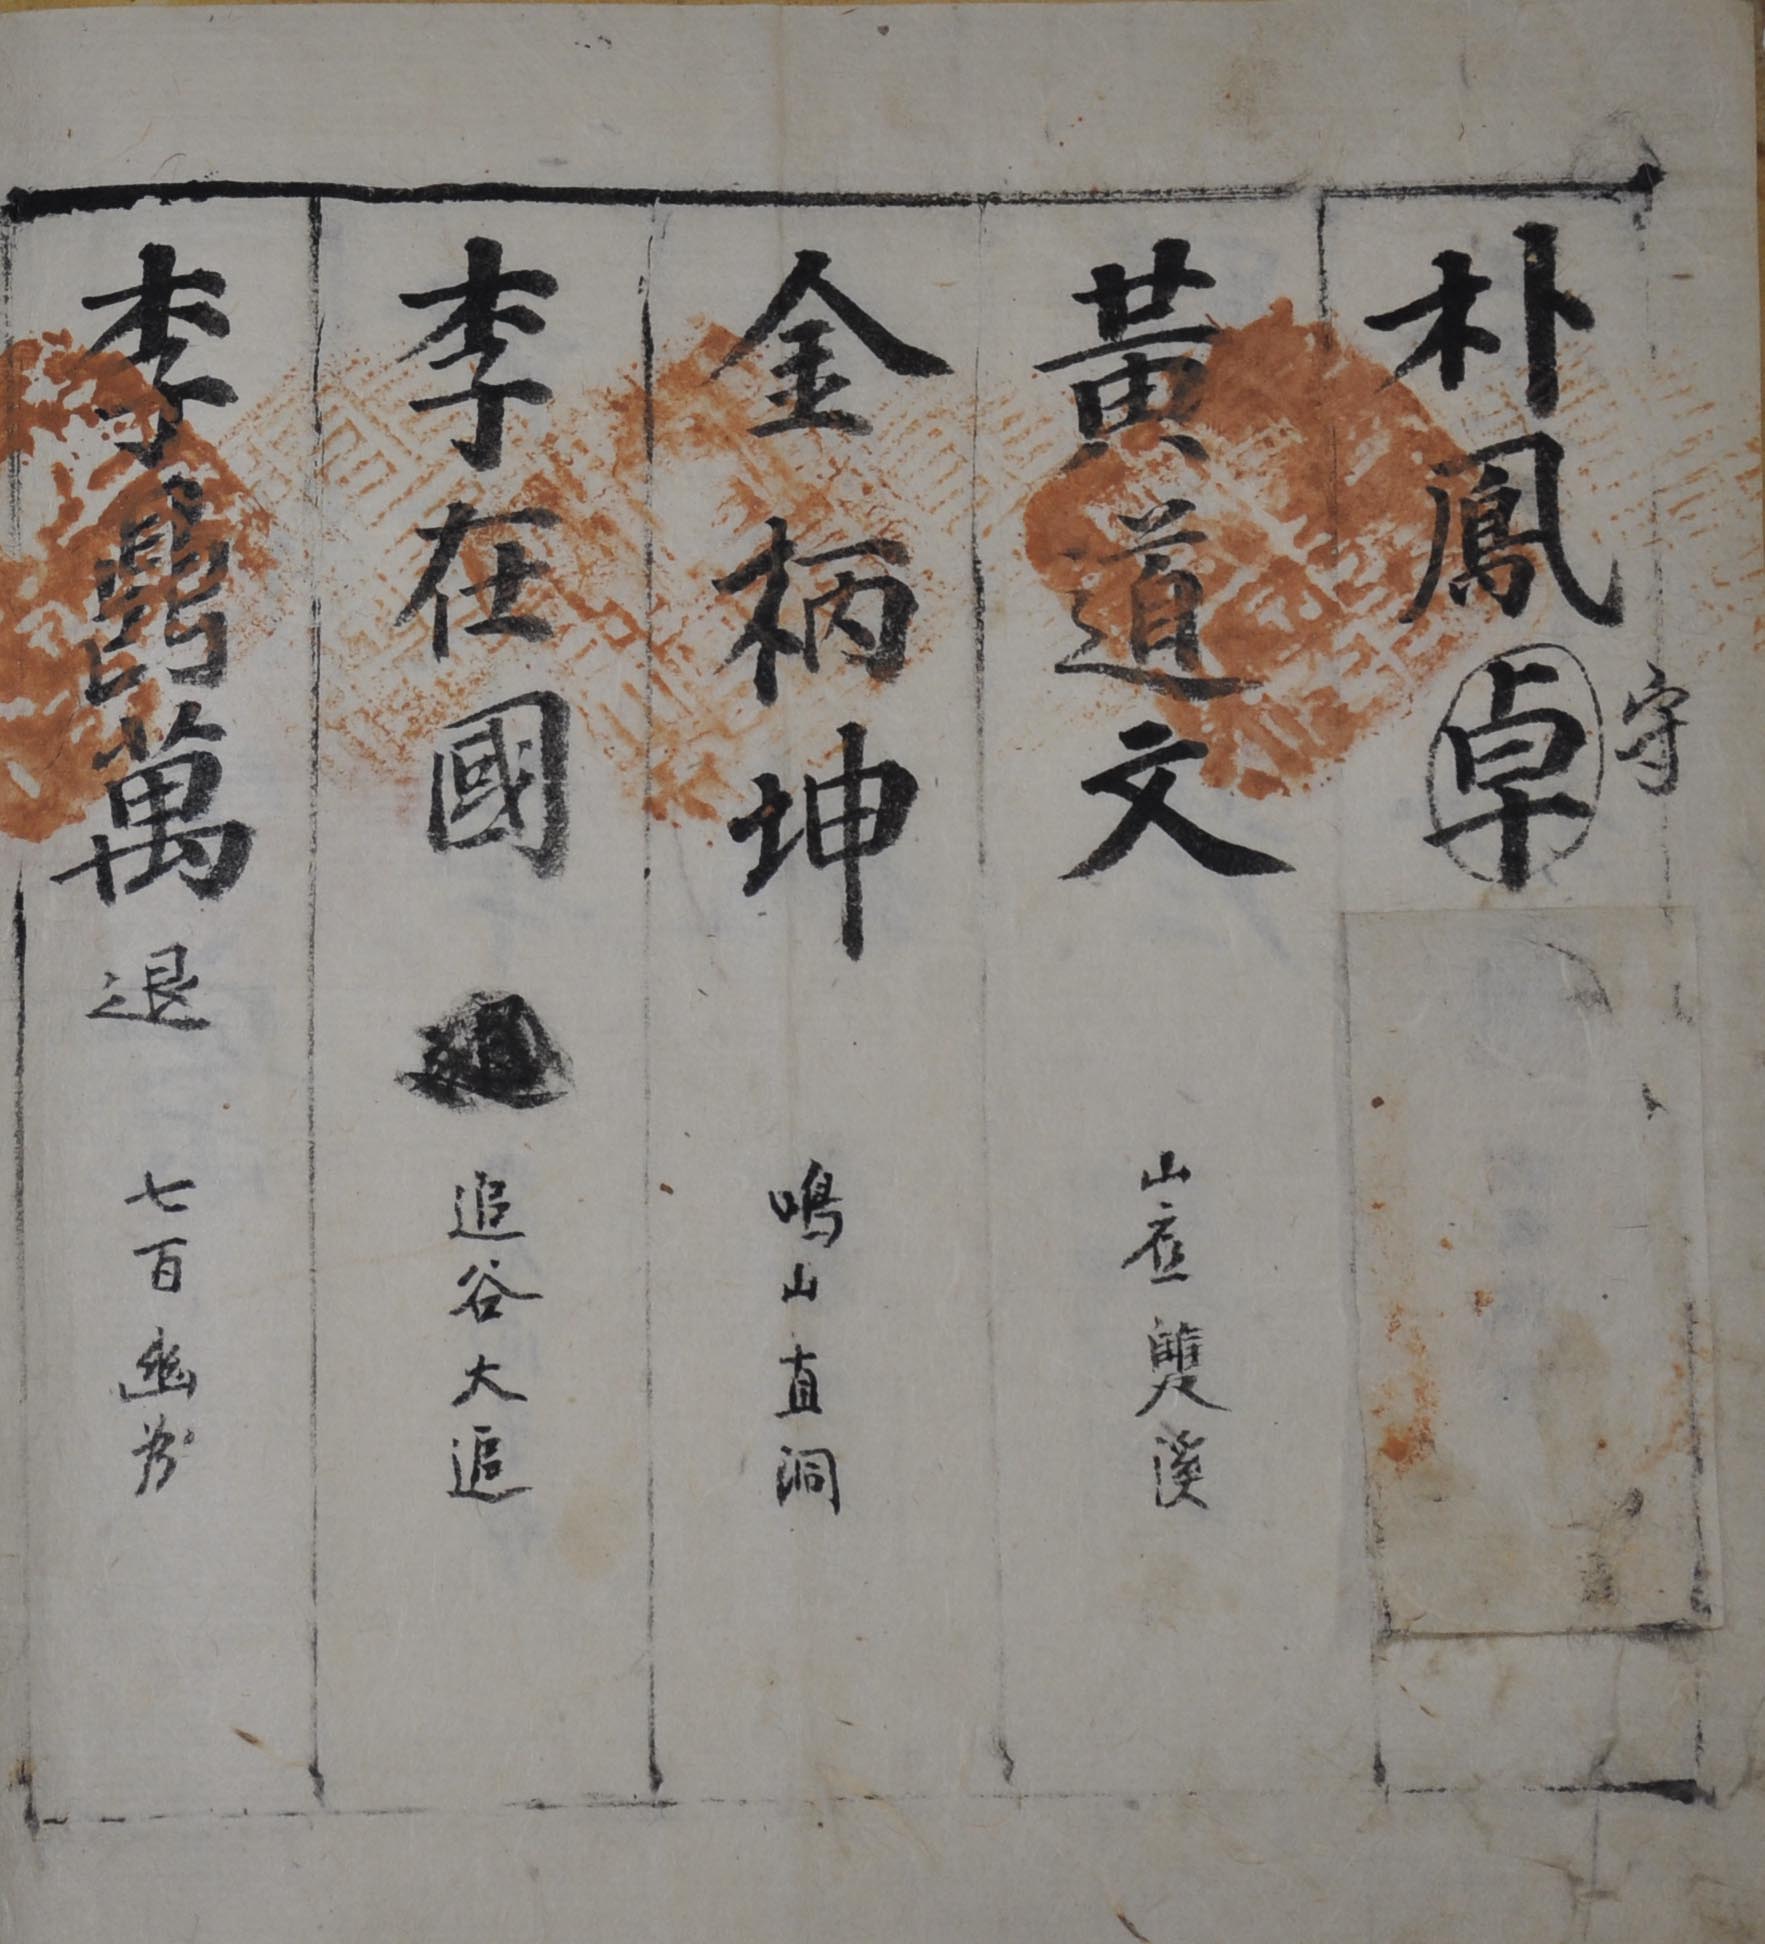 朴鳳卓
守
黃道文
山底雙溪
金柄坤
鳴山直洞
李在國
追谷大追
李鼎萬 退
七百幽芳